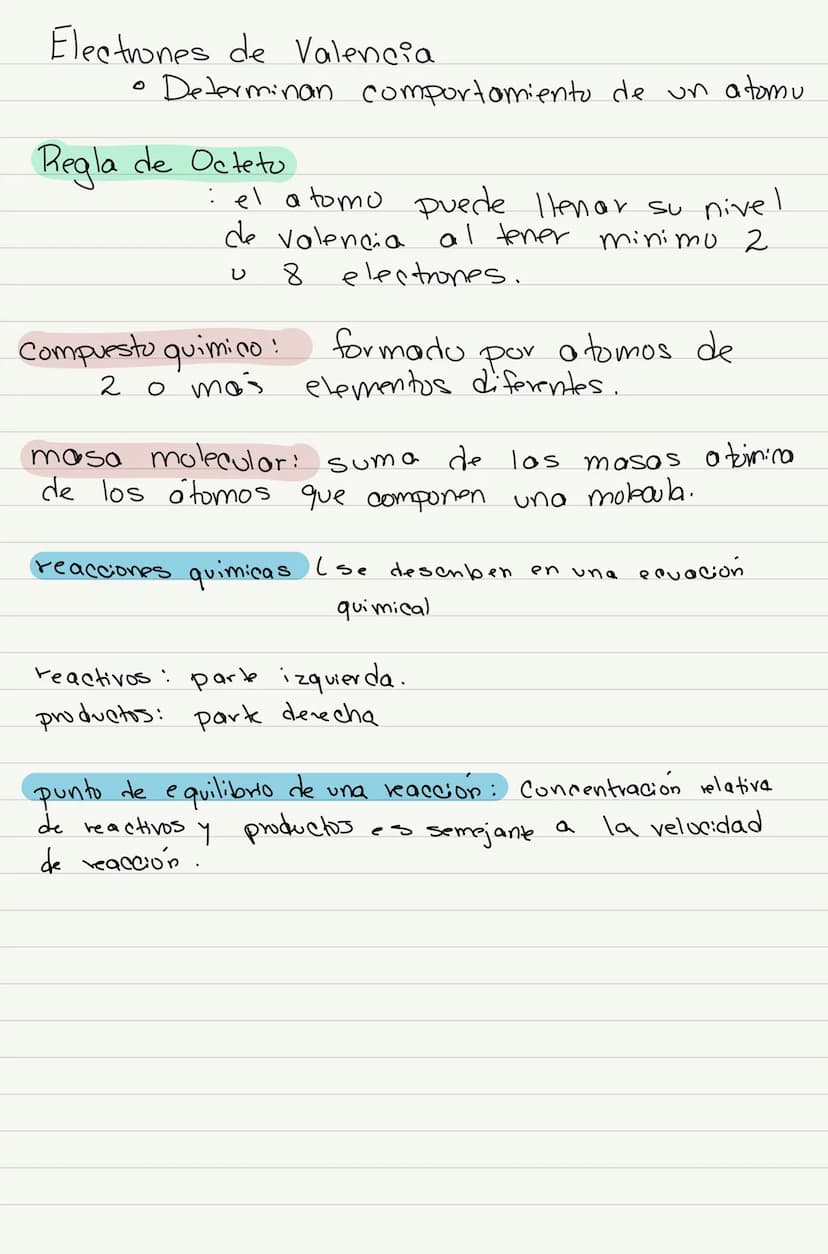 Electrones de Valencia
• Determinan comportamiento de un atomo
Regla de Octeto
: el atomo puede llenar su nivel
de valencia al tener minimo 2
u 8 electrones.
Compuesto quimico: formado por atomos de
2 o más elementos diferentes.
masa molecular: suma de las masas atómica
de los átomos que componen una molecula.
reacciones quimicas (se describen en una ecuación
quimica)
reactivos: parte izquierda.
productos: parte derecha
punto de equilibrio de una reacción: Concentración relativa
de reactivos y productos es semejante a la velocidad
de reacción.